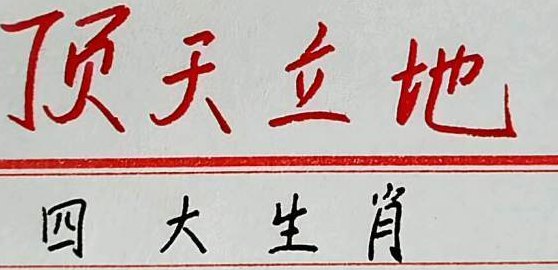 顶天立地
四大生肖